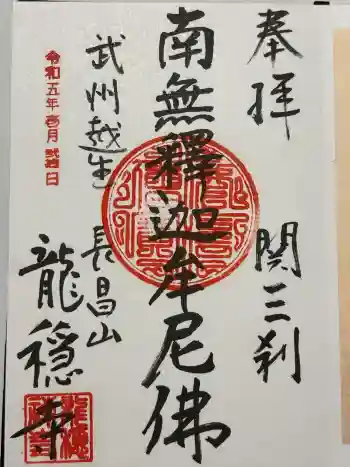 奉拝 関三刹
南無釋迦牟尼佛
武州越生 長昌山
龍穏寺
令和五年壱月弐日